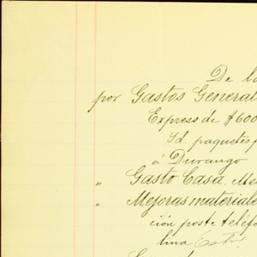 De la
por Gastos General
Express de $600
Id. paquetes p
á Durango
" Gasto Casa. Me
" Mejoras materiale
ción poste teléfo
lina